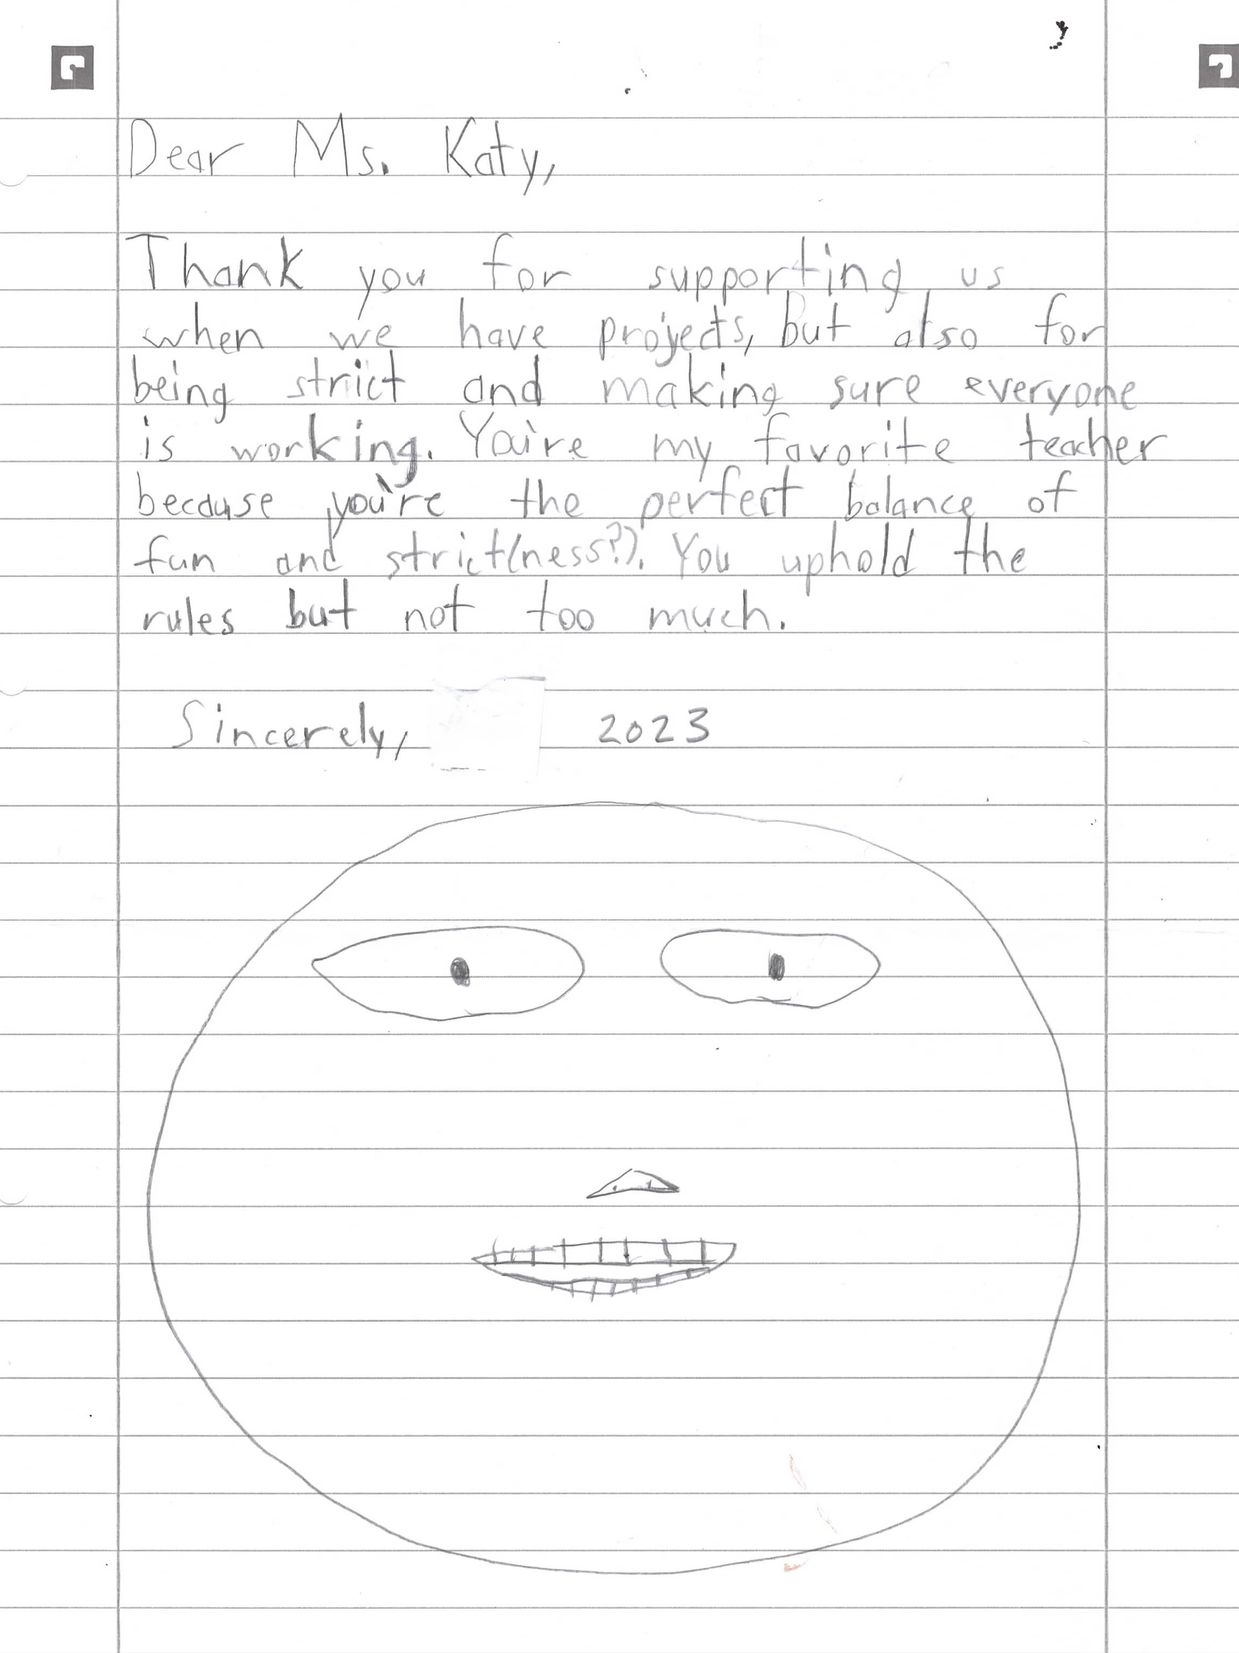 Dear Ms. Katy,
Thank you for supporting us
when we have projects, but also for
being strict and making sure everyone
is working. You're my favorite teacher
because you're the perfect balance of
fun and strict(ness?). You uphold the
rules but not too much.
Sincerely, 2023